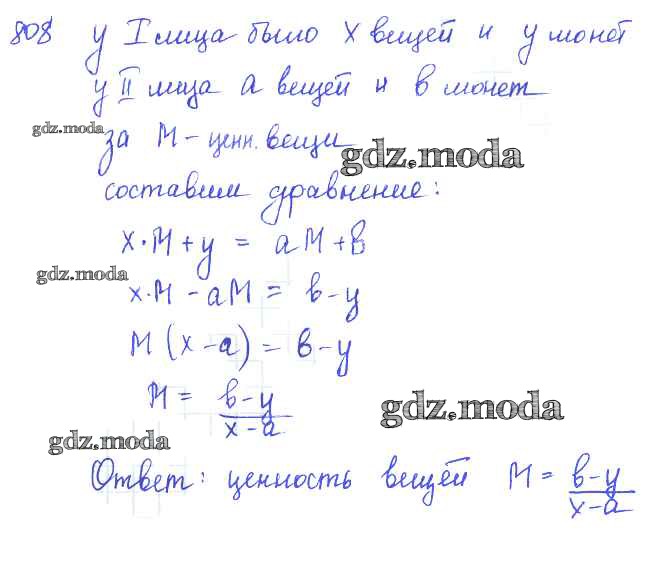 808 у I лица было x вещей и y монет
у II лица a вещей и в монет
gdz.moda
за М - ценн. вещи
gdz.moda
составим уравнение:
x·М + y = aМ + в
gdz.moda
x·М - aМ = в - y
М (x - a) = в - y
М = в - y / x - a
gdz.moda
gdz.moda
Ответ: ценность вещей М = в - y / x - a